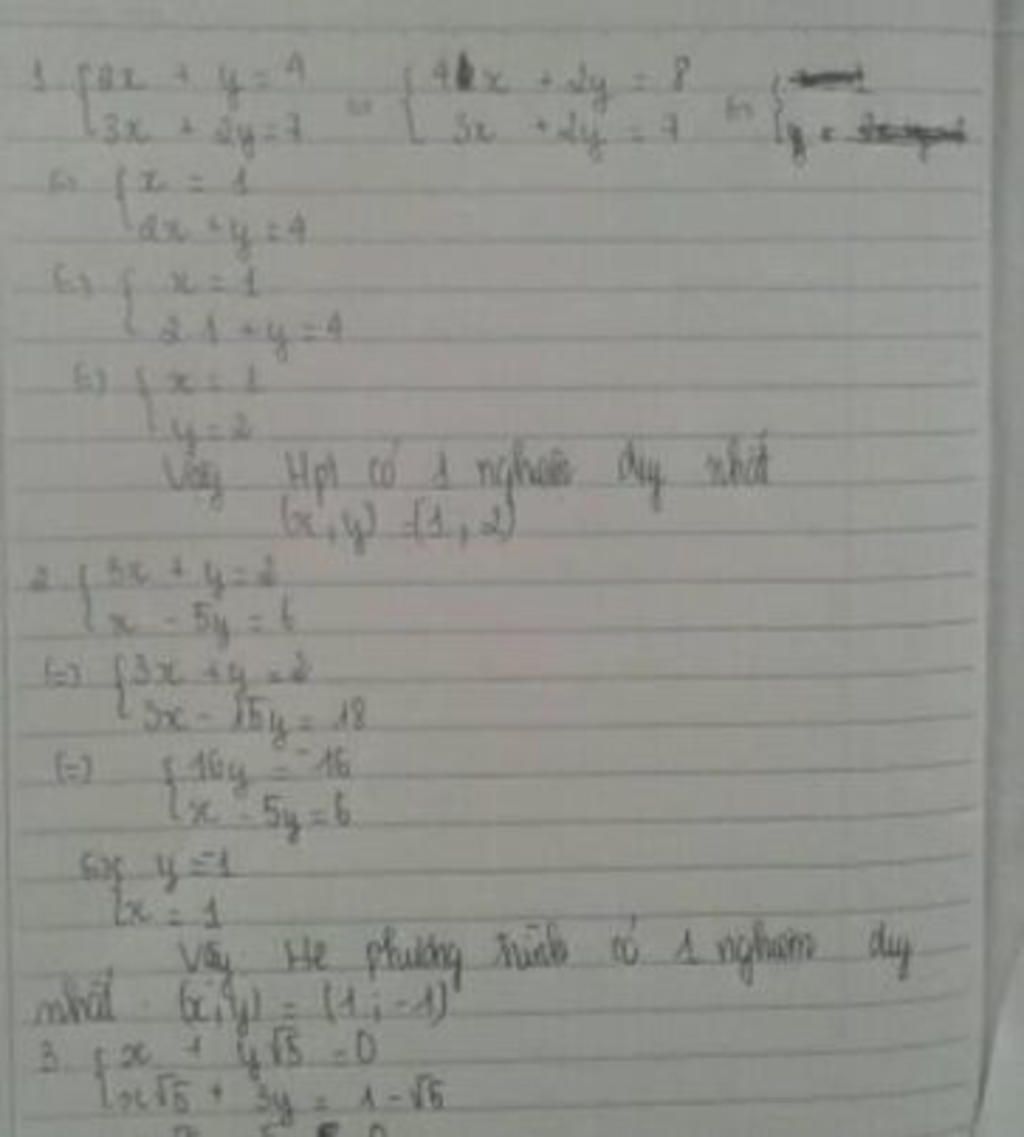 1. { 2x + y = 4 <=> { 4x + 2y = 8 <=> {
3x + 2y = 7 3x + 2y = 7 y =
<=> { x = 1
2x + y = 4
<=> { x = 1
2.1 + y = 4
<=> { x = 1
y = 2
Vậy Hpt có 1 nghiệm duy nhất
(x, y) = (1, 2)
2. { 3x + y = 2
x - 5y = 6
<=> { 3x + y = 2
3x - 15y = 18
<=> { 16y = -16
x - 5y = 6
<=> { y = -1
x = 1
Vậy Hệ phương trình có 1 nghiệm duy
nhất (x, y) = (1; -1)
3. { x + y√5 = 0
x√5 + 3y = 1 - √5